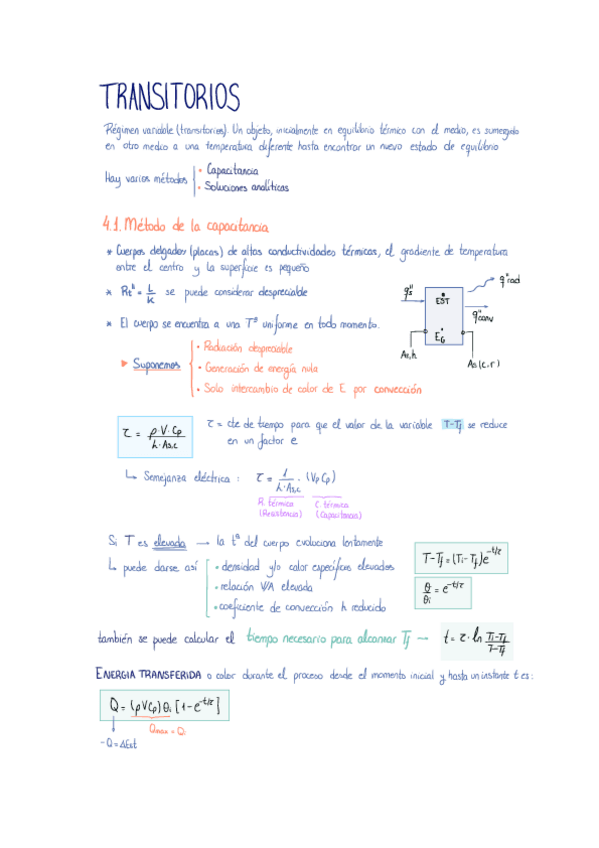 TRANSITORIOS
Régimen variable (transitorios). Un objeto, inicialmente en equilibrio térmico con el medio, es sumergido
en otro medio a una temperatura diferente hasta encontrar un nuevo estado de equilibrio
Hay varios métodos
• Capacitancia
• Soluciones analíticas
4.1. Método de la capacitancia
* Cuerpos delgados (placas) de altas conductividades térmicas, el gradiente de temperatura
entre el centro y la superficie es pequeño
* Rt = L/K se puede considerar despreciable
* El cuerpo se encuentra a una Tª uniforme en todo momento.
▸ Suponemos
• Radiación despreciable
• Generación de energía nula
• Solo intercambio de calor de E por convección
q"s
EST
EG
q"rad
q"conv
As,h
As(c,r)
τ = ρ·V·Cp / h·As,c
τ = cte de tiempo para que el valor de la variable T-Tf se reduce
en un factor e
↳ Semejanza eléctrica : τ = 1/h·As,c · (VρCp)
R. térmica C. térmica
(Resistencia) (Capacitancia)
Si τ es elevada → la tª del cuerpo evoluciona lentamente
↳ puede darse así
• densidad y/o calor específicos elevados
• relación V/A elevada
• coeficiente de convección h reducido
T-Tf = (Ti-Tf)e^-t/τ
θ/θi = e^-t/τ
también se puede calcular el tiempo necesario para alcanzar Tf → t = τ·ln Ti-Tf/T-Tf
ENERGIA TRANSFERIDA o calor durante el proceso desde el momento inicial y hasta un instante t es:
Q = (ρVCp)θi [1-e^-t/τ]
Qmax = Qi
-Q = ΔEst